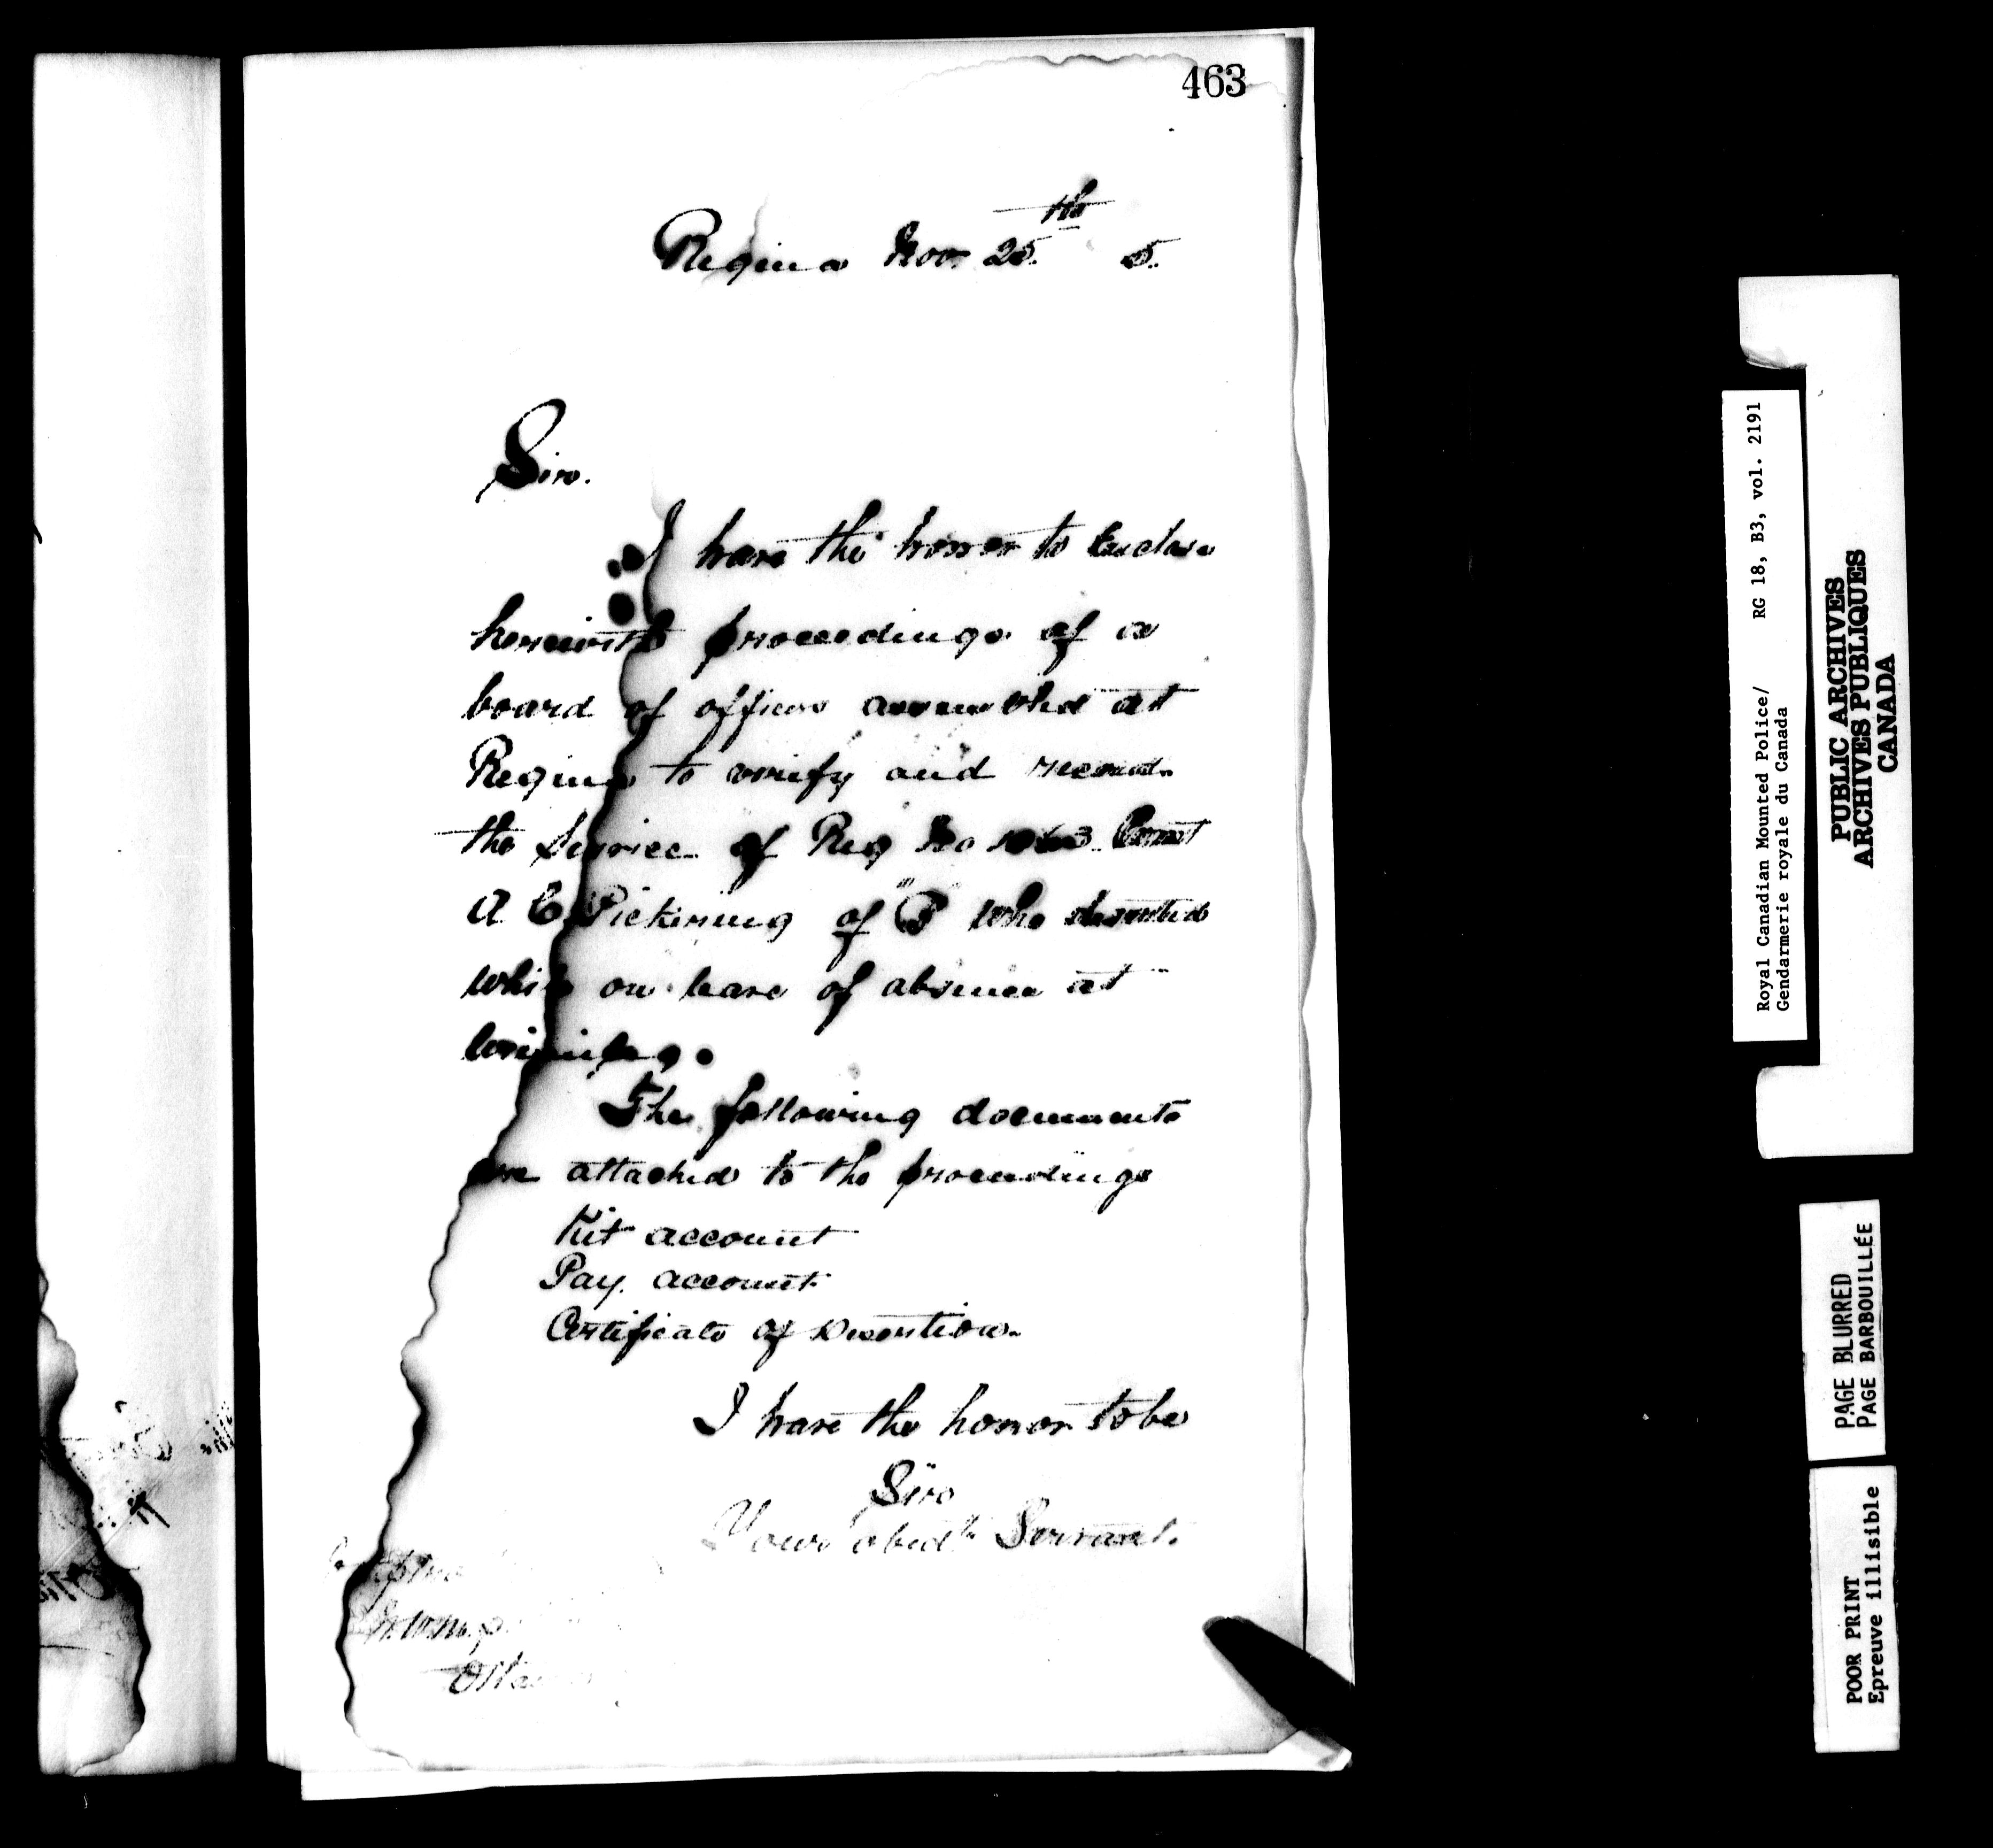 463
Regina Nov 25th 5.
Sir.
I have the honor to Enclose
herewith proceedings of a
board of officers assembled at
Regina to verify and record
the Service of Reg No Const
A C Pickering of "B" who deserted
while on leave of absence at
Winnipeg.
The following documents
are attached to the proceedings
Kit account
Pay. account
Certificate of Desertion.
I have the honor to be
Sir
Your obedt Servant.
Ottawa
Royal Canadian Mounted Police/ RG 18, B3, vol. 2191
Gendarmerie royale du Canada
PUBLIC ARCHIVES
ARCHIVES PUBLIQUES
CANADA
PAGE BLURRED
PAGE BARBOUILLÉE
POOR PRINT
Epreuve illisible